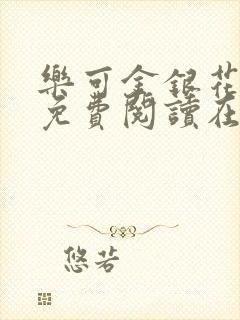 樂可金銀花
免費閱讀在
悠若